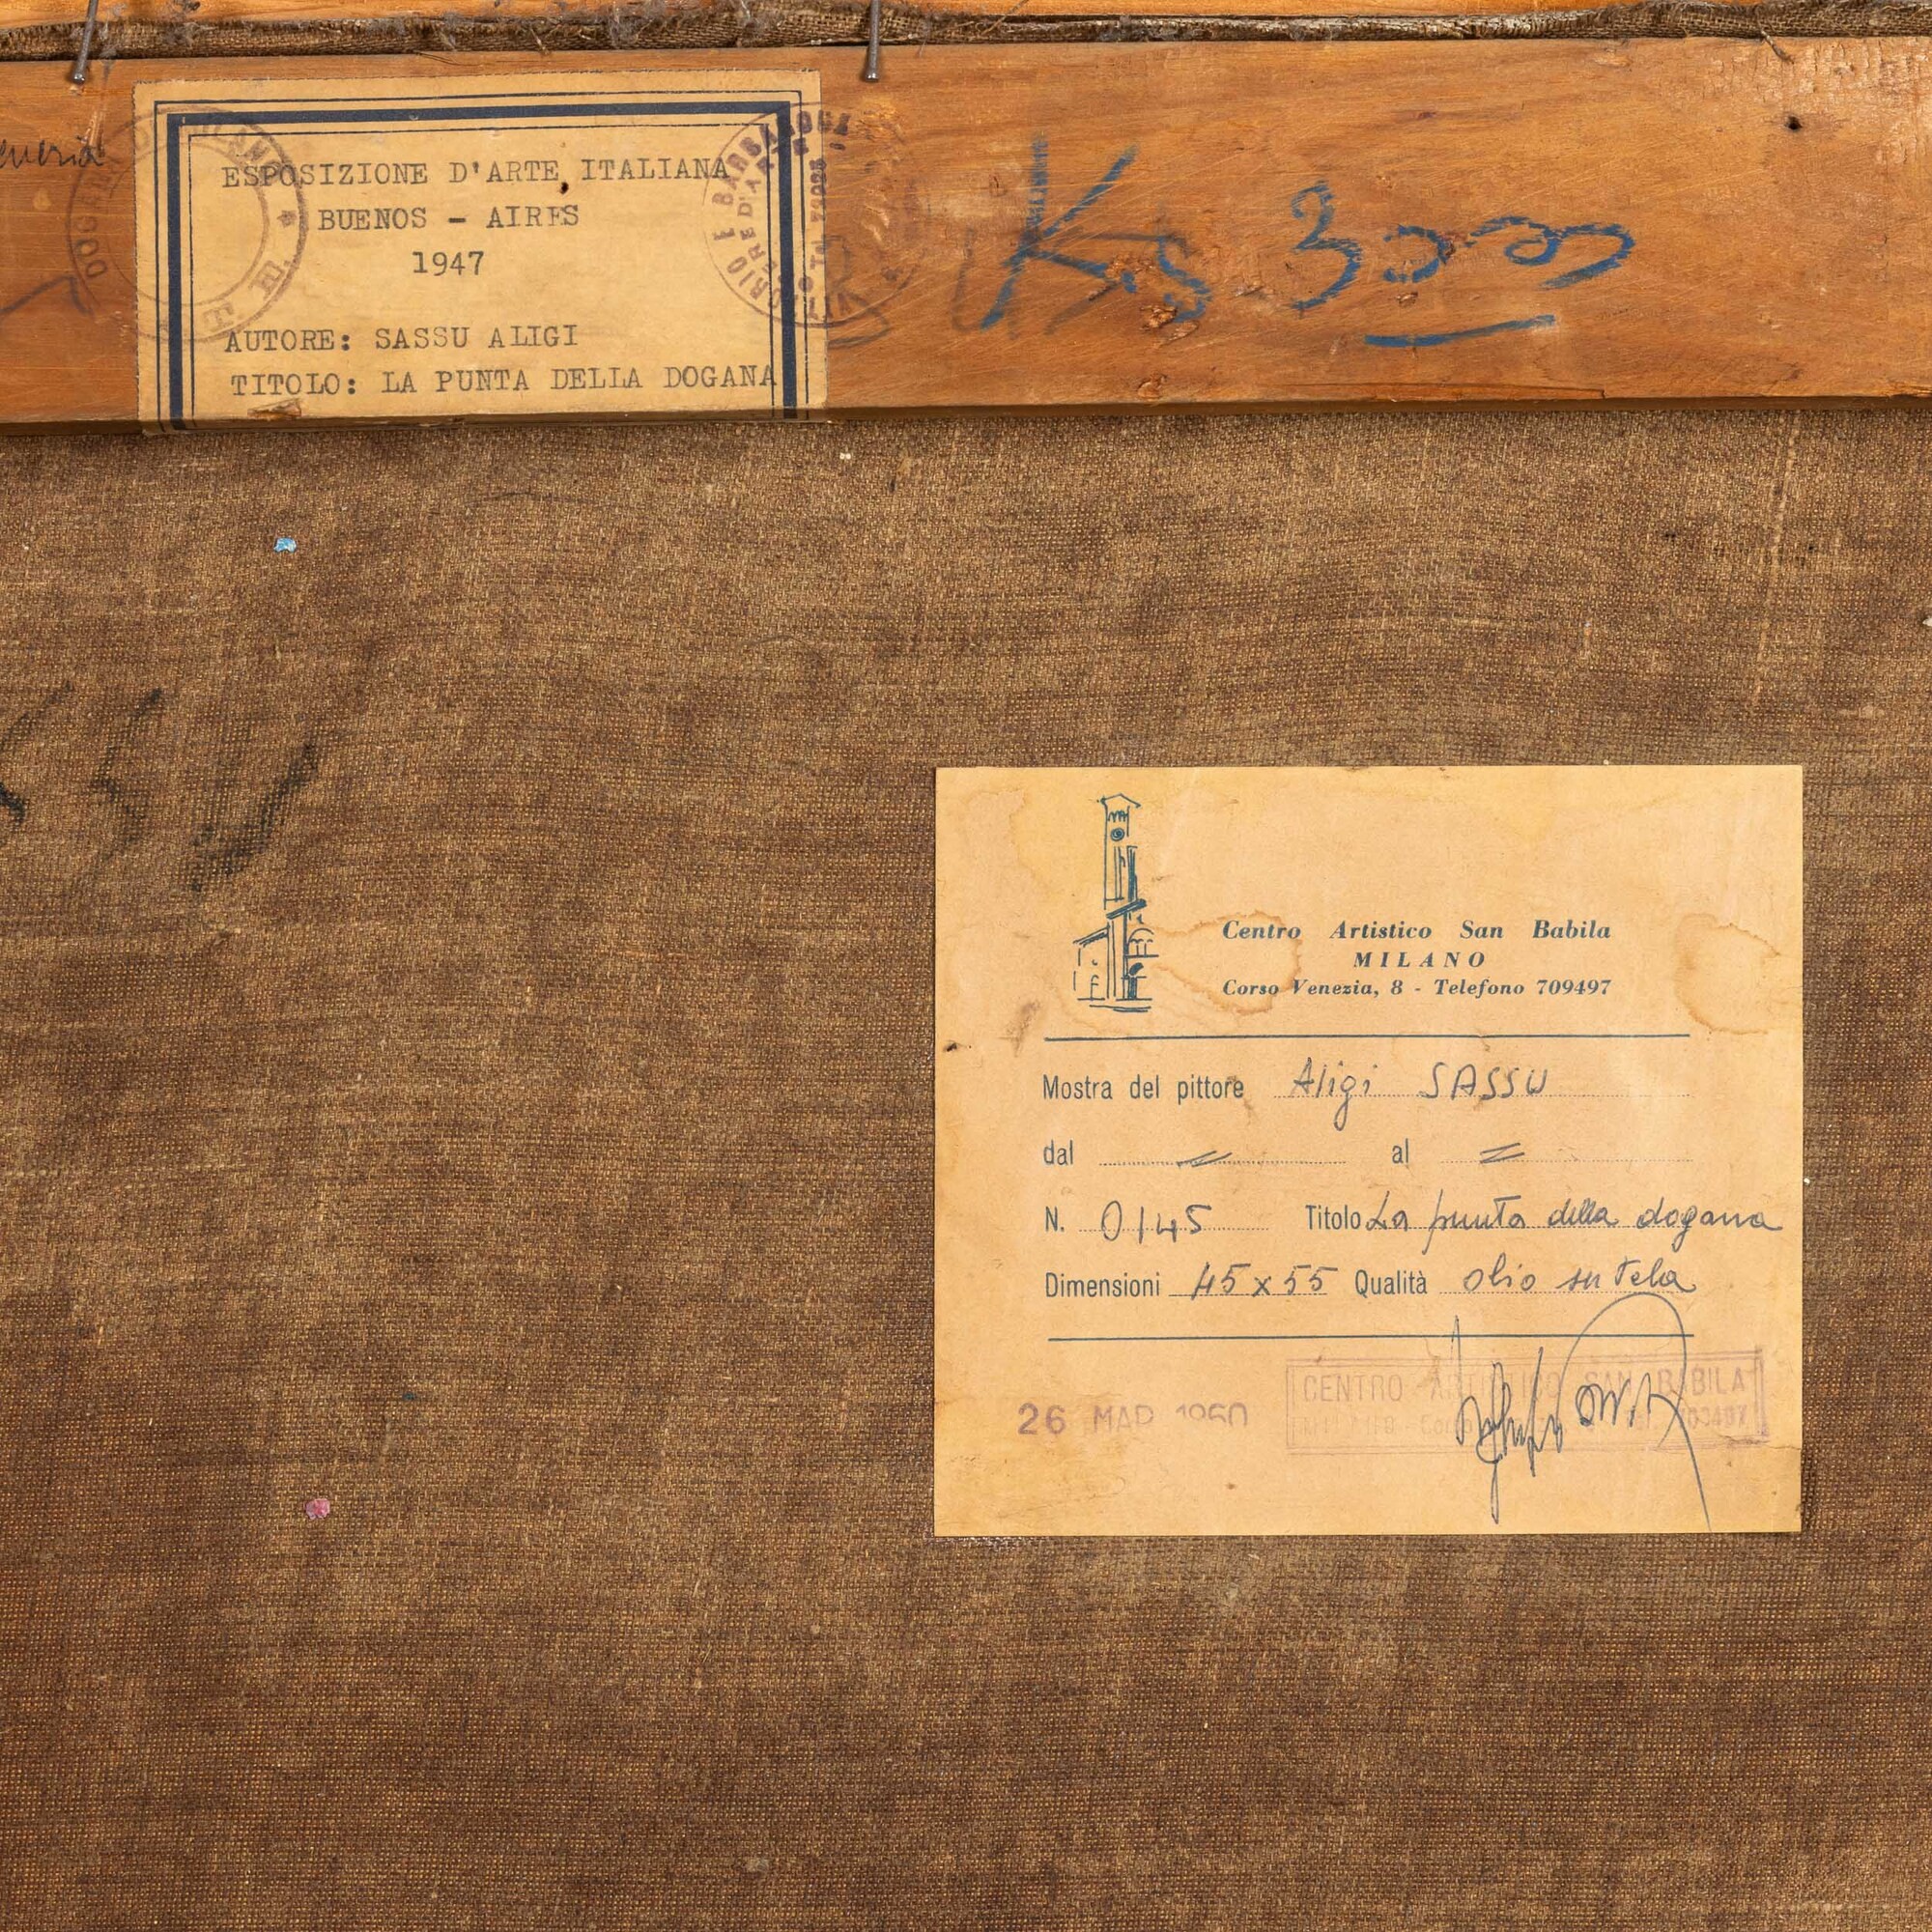 ESPOSIZIONE D'ARTE ITALIANA
BUENOS - AIRES
1947
AUTORE: SASSU ALIGI
TITOLO: LA PUNTA DELLA DOGANA
DOGANA
BARBAROUX
Centro Artistico San Babila
MILANO
Corso Venezia, 8 - Telefono 709497
Mostra del pittore Aligi SASSU
dal = al =
N. 0145 Titolo La punta della dogana
Dimensioni 45x55 Qualità olio su tela
26 MAR 1960
CENTRO ARTISTICO SAN BABILA